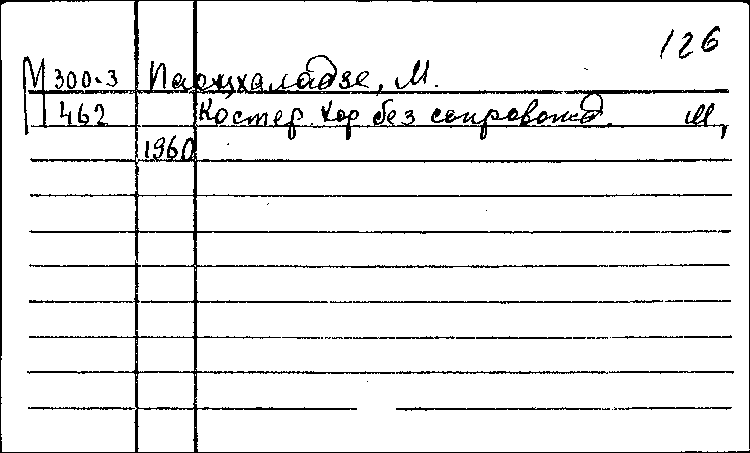 126
М 300-3 Парцхаладзе, М.
462 Костер. Хор без сопровожд. М,
1960